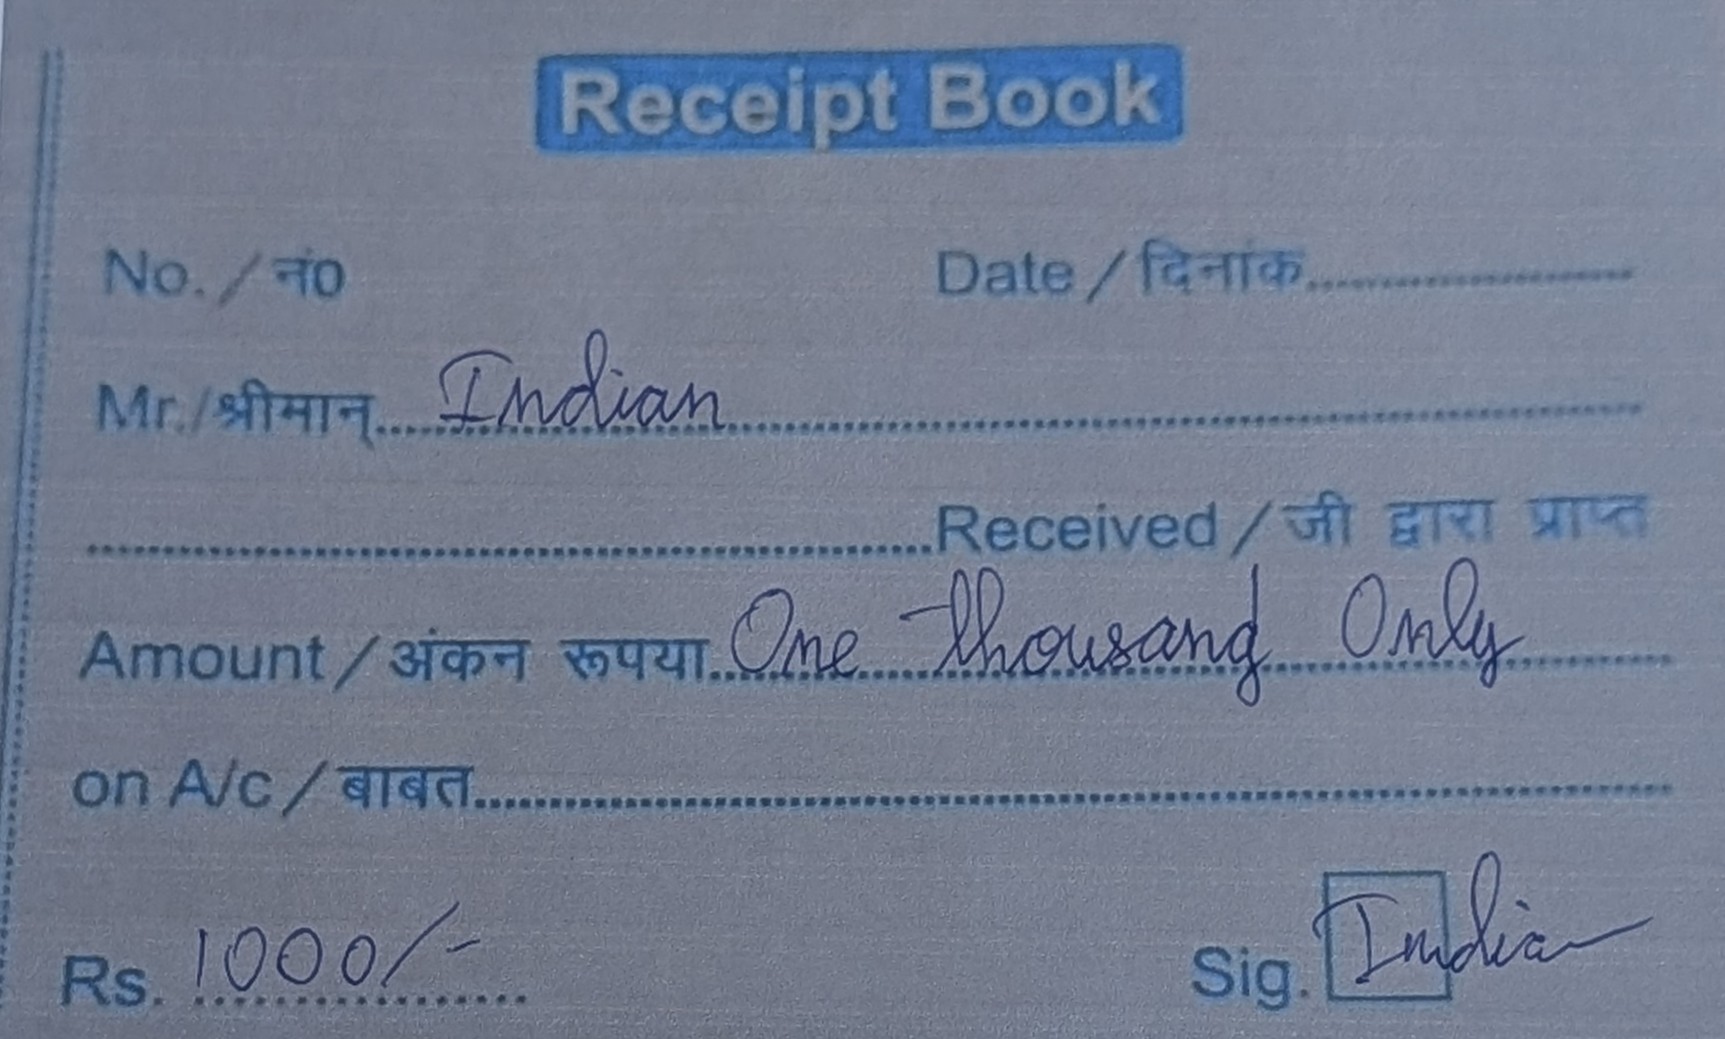 Receipt Book
No. / नं0 Date / दिनांक
Mr./श्रीमान् Indian
Received / जी द्वारा प्राप्त
Amount / अंकन रूपया One thousand Only
on A/c / बाबत
Rs. 1000/- Sig. Indian